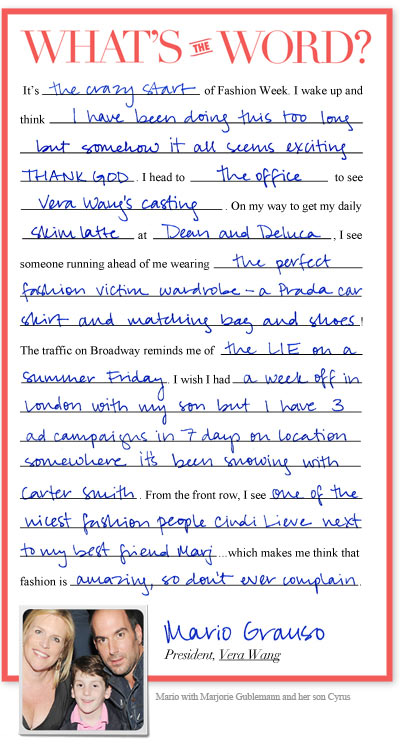 WHAT'S THE WORD?
It's the crazy start of Fashion Week. I wake up and
think I have been doing this too long
but somehow it all seems exciting
THANK GOD. I head to the office to see
Vera Wang's casting. On my way to get my daily
skim latte at Dean and Deluca, I see
someone running ahead of me wearing the perfect
fashion victim wardrobe - a Prada car
skirt and matching bag and shoes!
The traffic on Broadway reminds me of the LIE on a
summer Friday. I wish I had a week off in
London with my son but I have 3
ad campaigns in 7 days on location
somewhere it's been snowing with
Carter Smith. From the front row, I see one of the
nicest fashion people Cindi Lieve next
to my best friend Marj...which makes me think that
fashion is amazing, so don't ever complain.
Mario Grauso
President, Vera Wang
Mario with Marjorie Gublemann and her son Cyrus